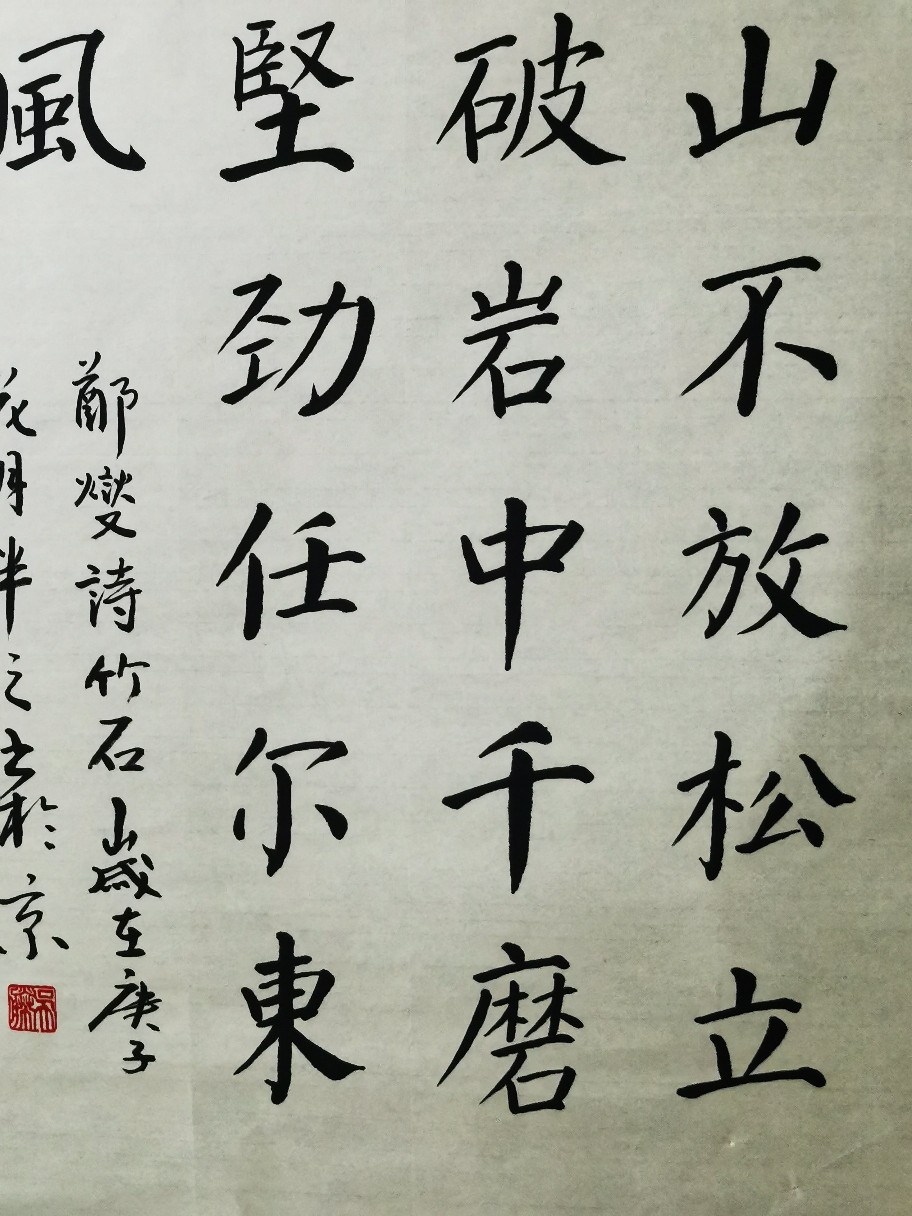 山不放松立
破岩中千磨
堅劲任尔東
風
鄭燮詩竹石歲在庚子
花月半之书於京